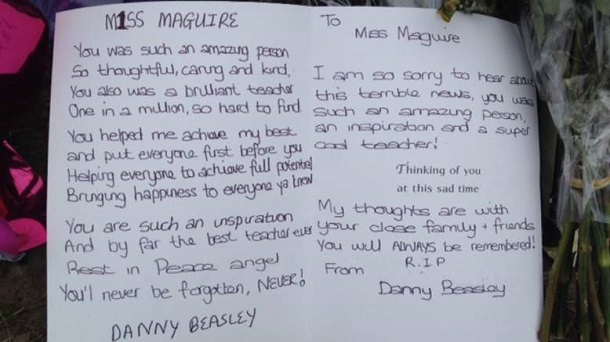 MISS MAGUIRE
You was such an amazing person
So thoughtful, caring and kind,
You also was a brilliant teacher
One in a million, so hard to find
You helped me achieve my best
and put everyone first before you
Helping everyone to achieve full potential
Bringing happiness to everyone ya know
You are such an inspiration
And by far the best teacher ever
Rest in Peace angel
You'l never be forgotten, NEVER!
DANNY BEASLEY
To
Miss Maguire
I am so sorry to hear about
this terrible news, you was
such an amazing person,
an inspiration and a super
cool teacher!
Thinking of you
at this sad time
My thoughts are with
your close family + friends
You will ALWAYS be remembered!
R.I.P
From
Danny Beasley